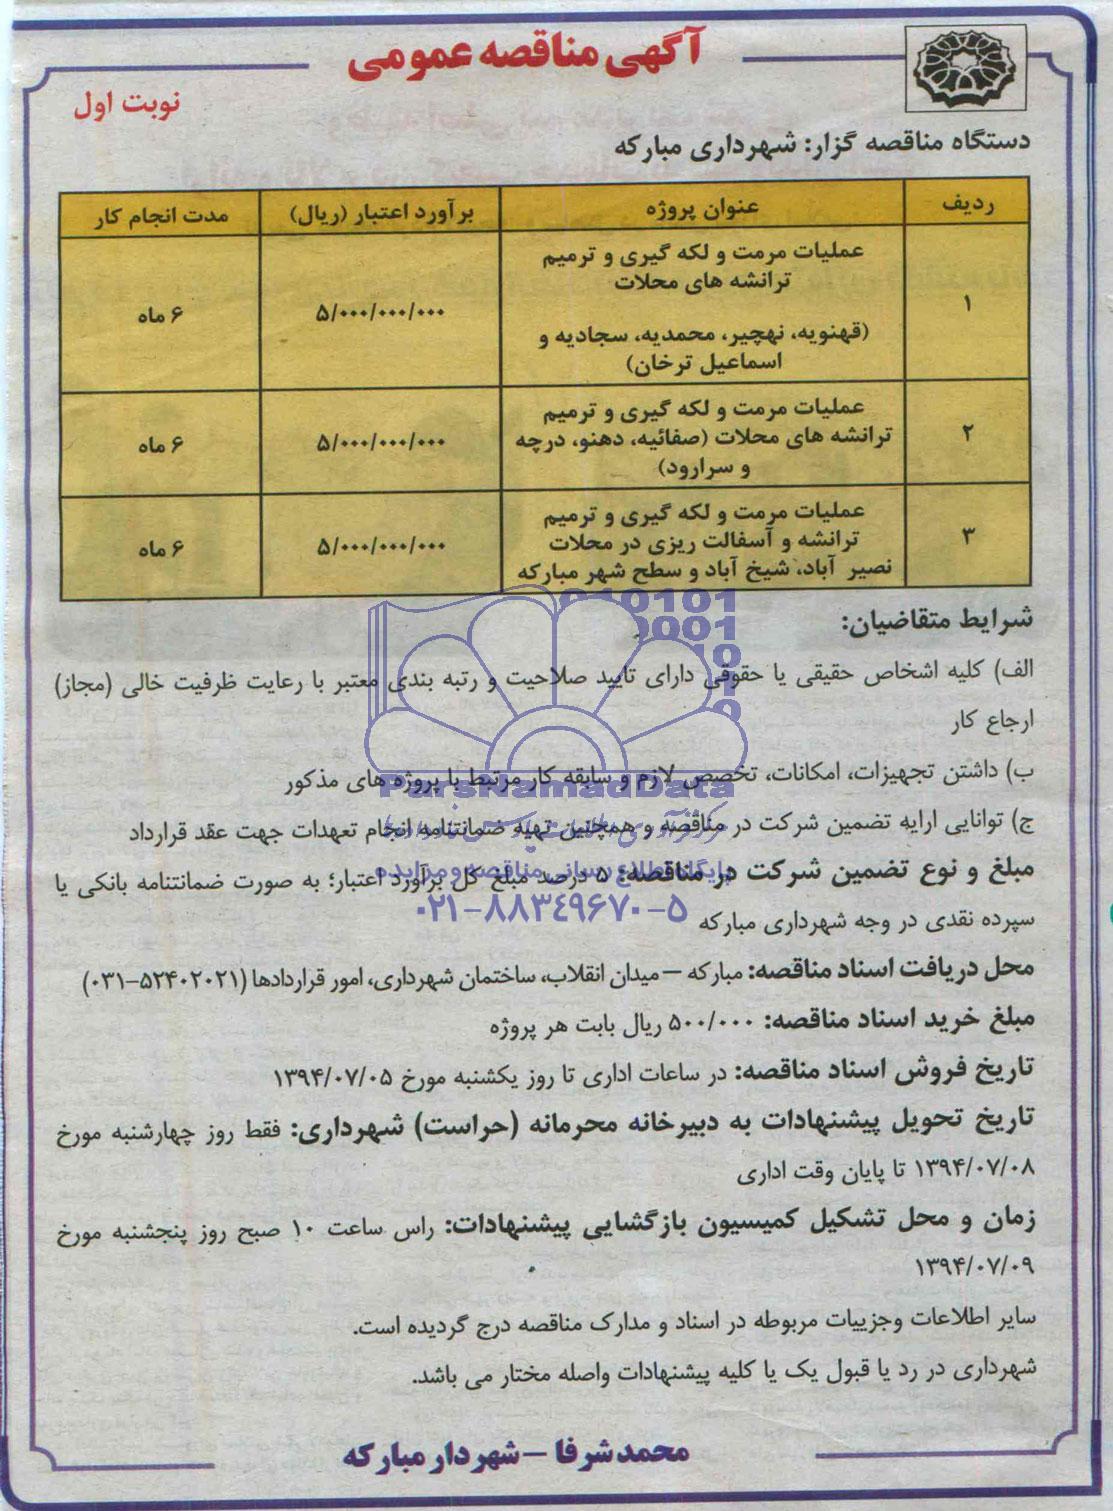 آگهی مناقصه عمومی
نوبت اول
دستگاه مناقصه گزار: شهرداری مبارکه
ردیف عنوان پروژه برآورد اعتبار (ریال) مدت انجام کار
عملیات مرمت و لکه گیری و ترمیم
ترانشه های محلات
۱ ۵/۰۰۰/۰۰۰/۰۰۰ ۶ ماه
(قهنویه، نهچیر، محمدیه، سجادیه و
اسماعیل ترخان)
عملیات مرمت و لکه گیری و ترمیم
۲ ترانشه های محلات (صفائیه، دهنو، درچه ۵/۰۰۰/۰۰۰/۰۰۰ ۶ ماه
و سرارود)
عملیات مرمت و لکه گیری و ترمیم
۳ ترانشه و آسفالت ریزی در محلات ۵/۰۰۰/۰۰۰/۰۰۰ ۶ ماه
نصیر آباد، شیخ آباد و سطح شهر مبارکه
شرایط متقاضیان:
الف) کلیه اشخاص حقیقی یا حقوقی دارای تایید صلاحیت و رتبه بندی معتبر با رعایت ظرفیت خالی (مجاز)
ارجاع کار
ب) داشتن تجهیزات، امکانات، تخصص لازم و سابقه کار مرتبط با پروژه های مذکور
ParsNamadData
ج) توانایی ارایه تضمین شرکت در مناقصه و همچنین تهیه ضمانتنامه انجام تعهدات جهت عقد قرارداد
مبلغ و نوع تضمین شرکت در مناقصه: ۵ درصد مبلغ کل برآورد اعتبار؛ به صورت ضمانتنامه بانکی یا
پایگاه اطلاع رسانی مناقصه و مزایده
سپرده نقدی در وجه شهرداری مبارکه
۰۲۱-۸۸۳۴۹۶۷۰-۵
محل دریافت اسناد مناقصه: مبارکه – میدان انقلاب، ساختمان شهرداری، امور قراردادها (۵۲۴۰۲۰۲۱-۰۳۱)
مبلغ خرید اسناد مناقصه: ۵۰۰/۰۰۰ ریال بابت هر پروژه
تاریخ فروش اسناد مناقصه: در ساعات اداری تا روز یکشنبه مورخ ۱۳۹۴/۰۷/۰۵
تاریخ تحویل پیشنهادات به دبیرخانه محرمانه (حراست) شهرداری: فقط روز چهارشنبه مورخ
۱۳۹۴/۰۷/۰۸ تا پایان وقت اداری
زمان و محل تشکیل کمیسیون بازگشایی پیشنهادات: راس ساعت ۱۰ صبح روز پنجشنبه مورخ
۱۳۹۴/۰۷/۰۹
سایر اطلاعات وجزییات مربوطه در اسناد و مدارک مناقصه درج گردیده است.
شهرداری در رد یا قبول یک یا کلیه پیشنهادات واصله مختار می باشد.
محمد شرفا – شهردار مبارکه